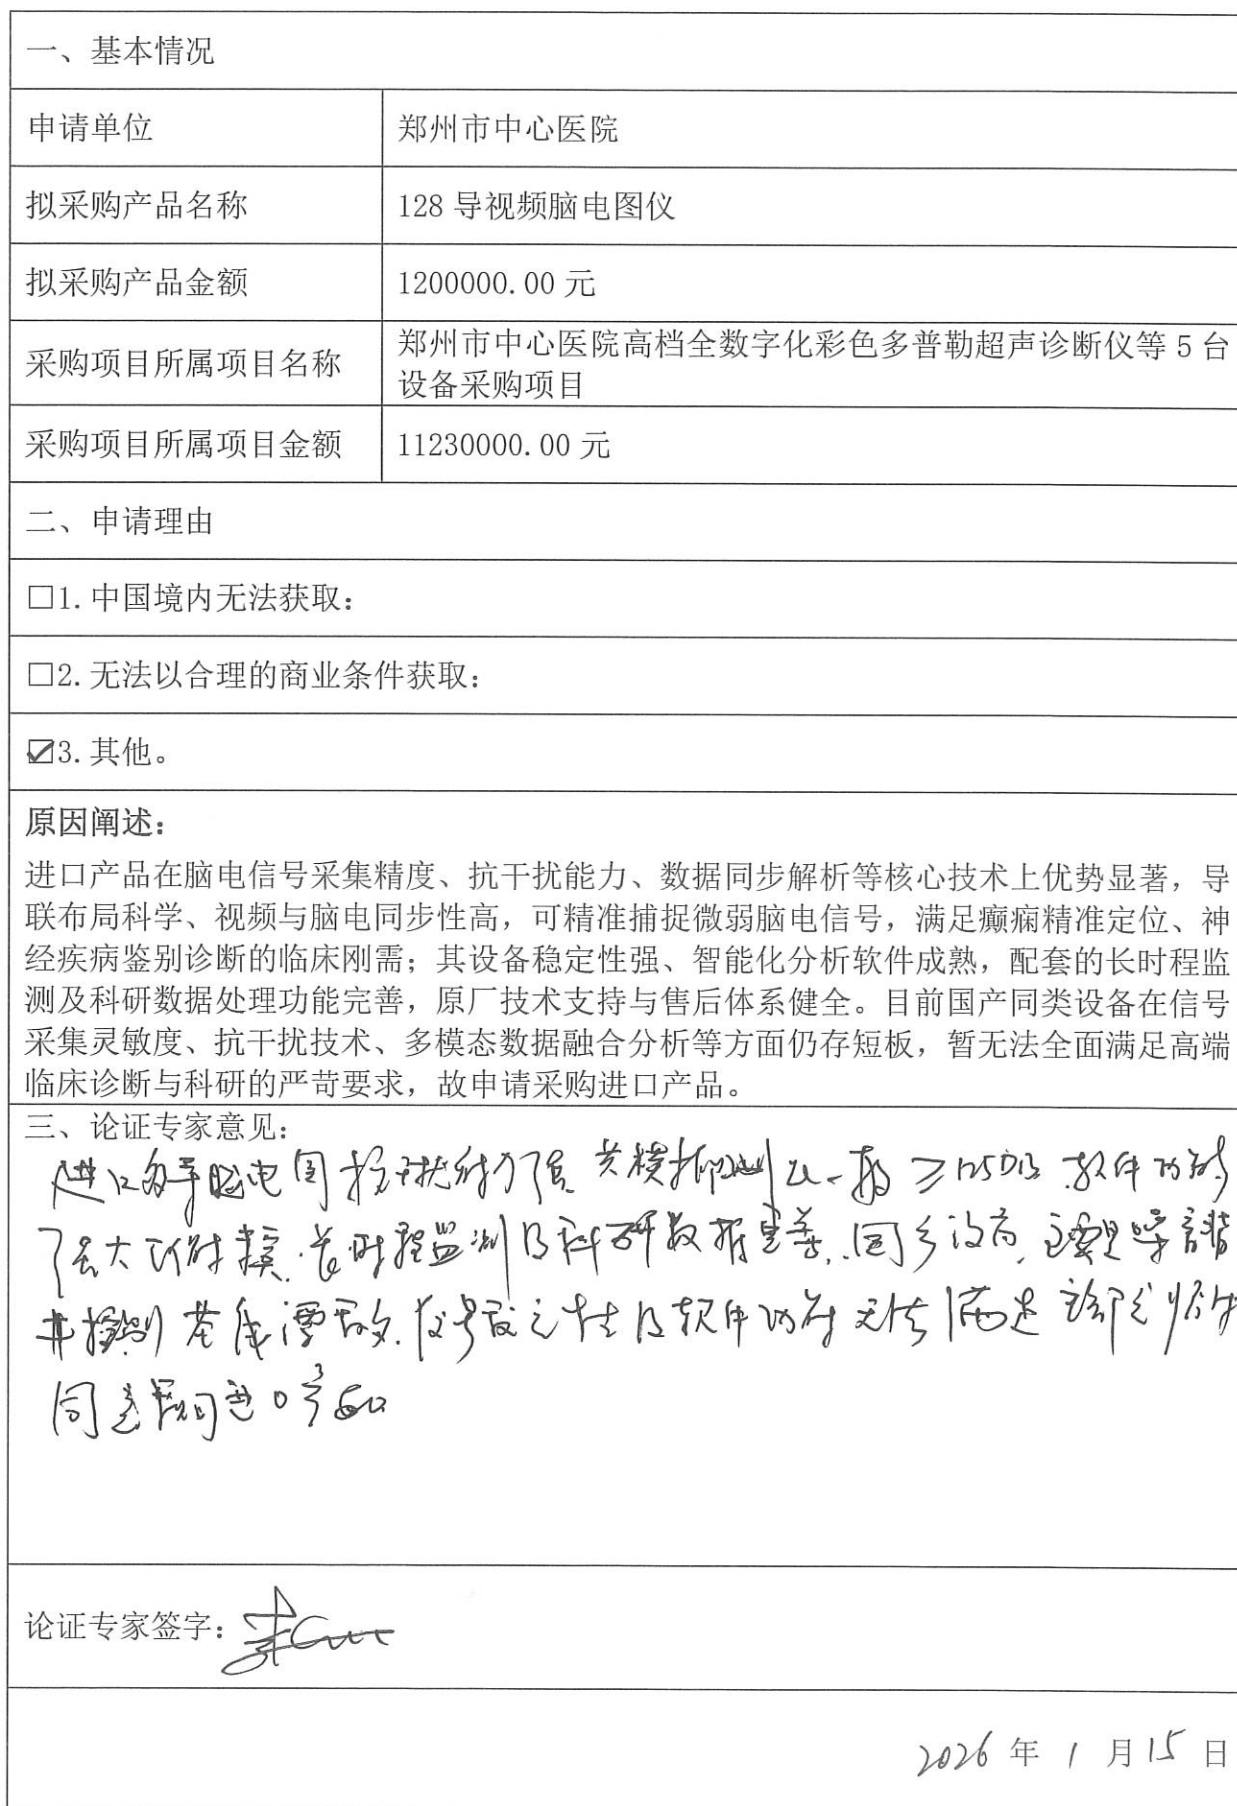 一、基本情况
申请单位
郑州市中心医院
拟采购产品名称
128 导视频脑电图仪
拟采购产品金额
1200000.00 元
采购项目所属项目名称
郑州市中心医院高档全数字化彩色多普勒超声诊断仪等 5 台
设备采购项目
采购项目所属项目金额
11230000.00 元
二、申请理由
□1.中国境内无法获取：
□2.无法以合理的商业条件获取：
☑3.其他。
原因阐述：
进口产品在脑电信号采集精度、抗干扰能力、数据同步解析等核心技术上优势显著，导
联布局科学、视频与脑电同步性高，可精准捕捉微弱脑电信号，满足癫痫精准定位、神
经疾病鉴别诊断的临床刚需；其设备稳定性强、智能化分析软件成熟，配套的长时程监
测及科研数据处理功能完善，原厂技术支持与售后体系健全。目前国产同类设备在信号
采集灵敏度、抗干扰技术、多模态数据融合分析等方面仍存短板，暂无法全面满足高端
临床诊断与科研的严苛要求，故申请采购进口产品。
三、论证专家意见：
进口 脑电图抗干扰能力强 共模抑制比一般 ≥ 软件功能
强大 长时程监测及科研数据完善
基线漂 及软件功能无法满足
同意 进口产品
论证专家签字：
2026 年 1 月 15 日